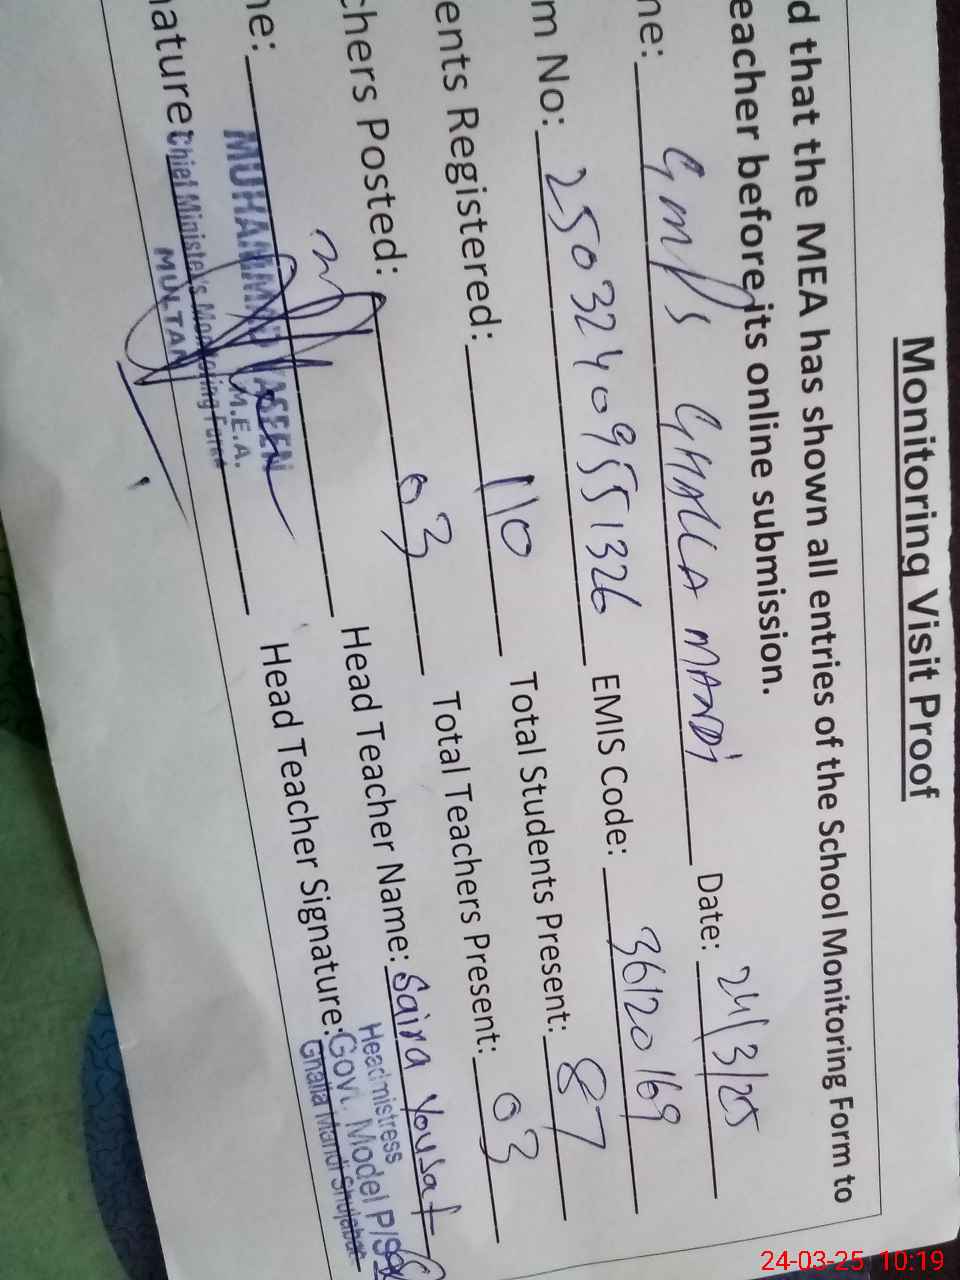 Monitoring Visit Proof
d that the MEA has shown all entries of the School Monitoring Form to
eacher before its online submission.
ne: GMPS GHALLA MANDI Date: 24/3/25
m No: 25032409551326 EMIS Code: 36120169
ents Registered: 110 Total Students Present: 87
chers Posted: 03 Total Teachers Present: 03
ne: MUHAMMAD YASEEN Head Teacher Name: Saira Yousaf
M.E.A.
nature: Chief Minister's Monitoring Force Head Teacher Signature:
MULTAN
Headmistress
Govt. Model P/S
Ghalla Mandi Shujabad
24-03-25 10:19